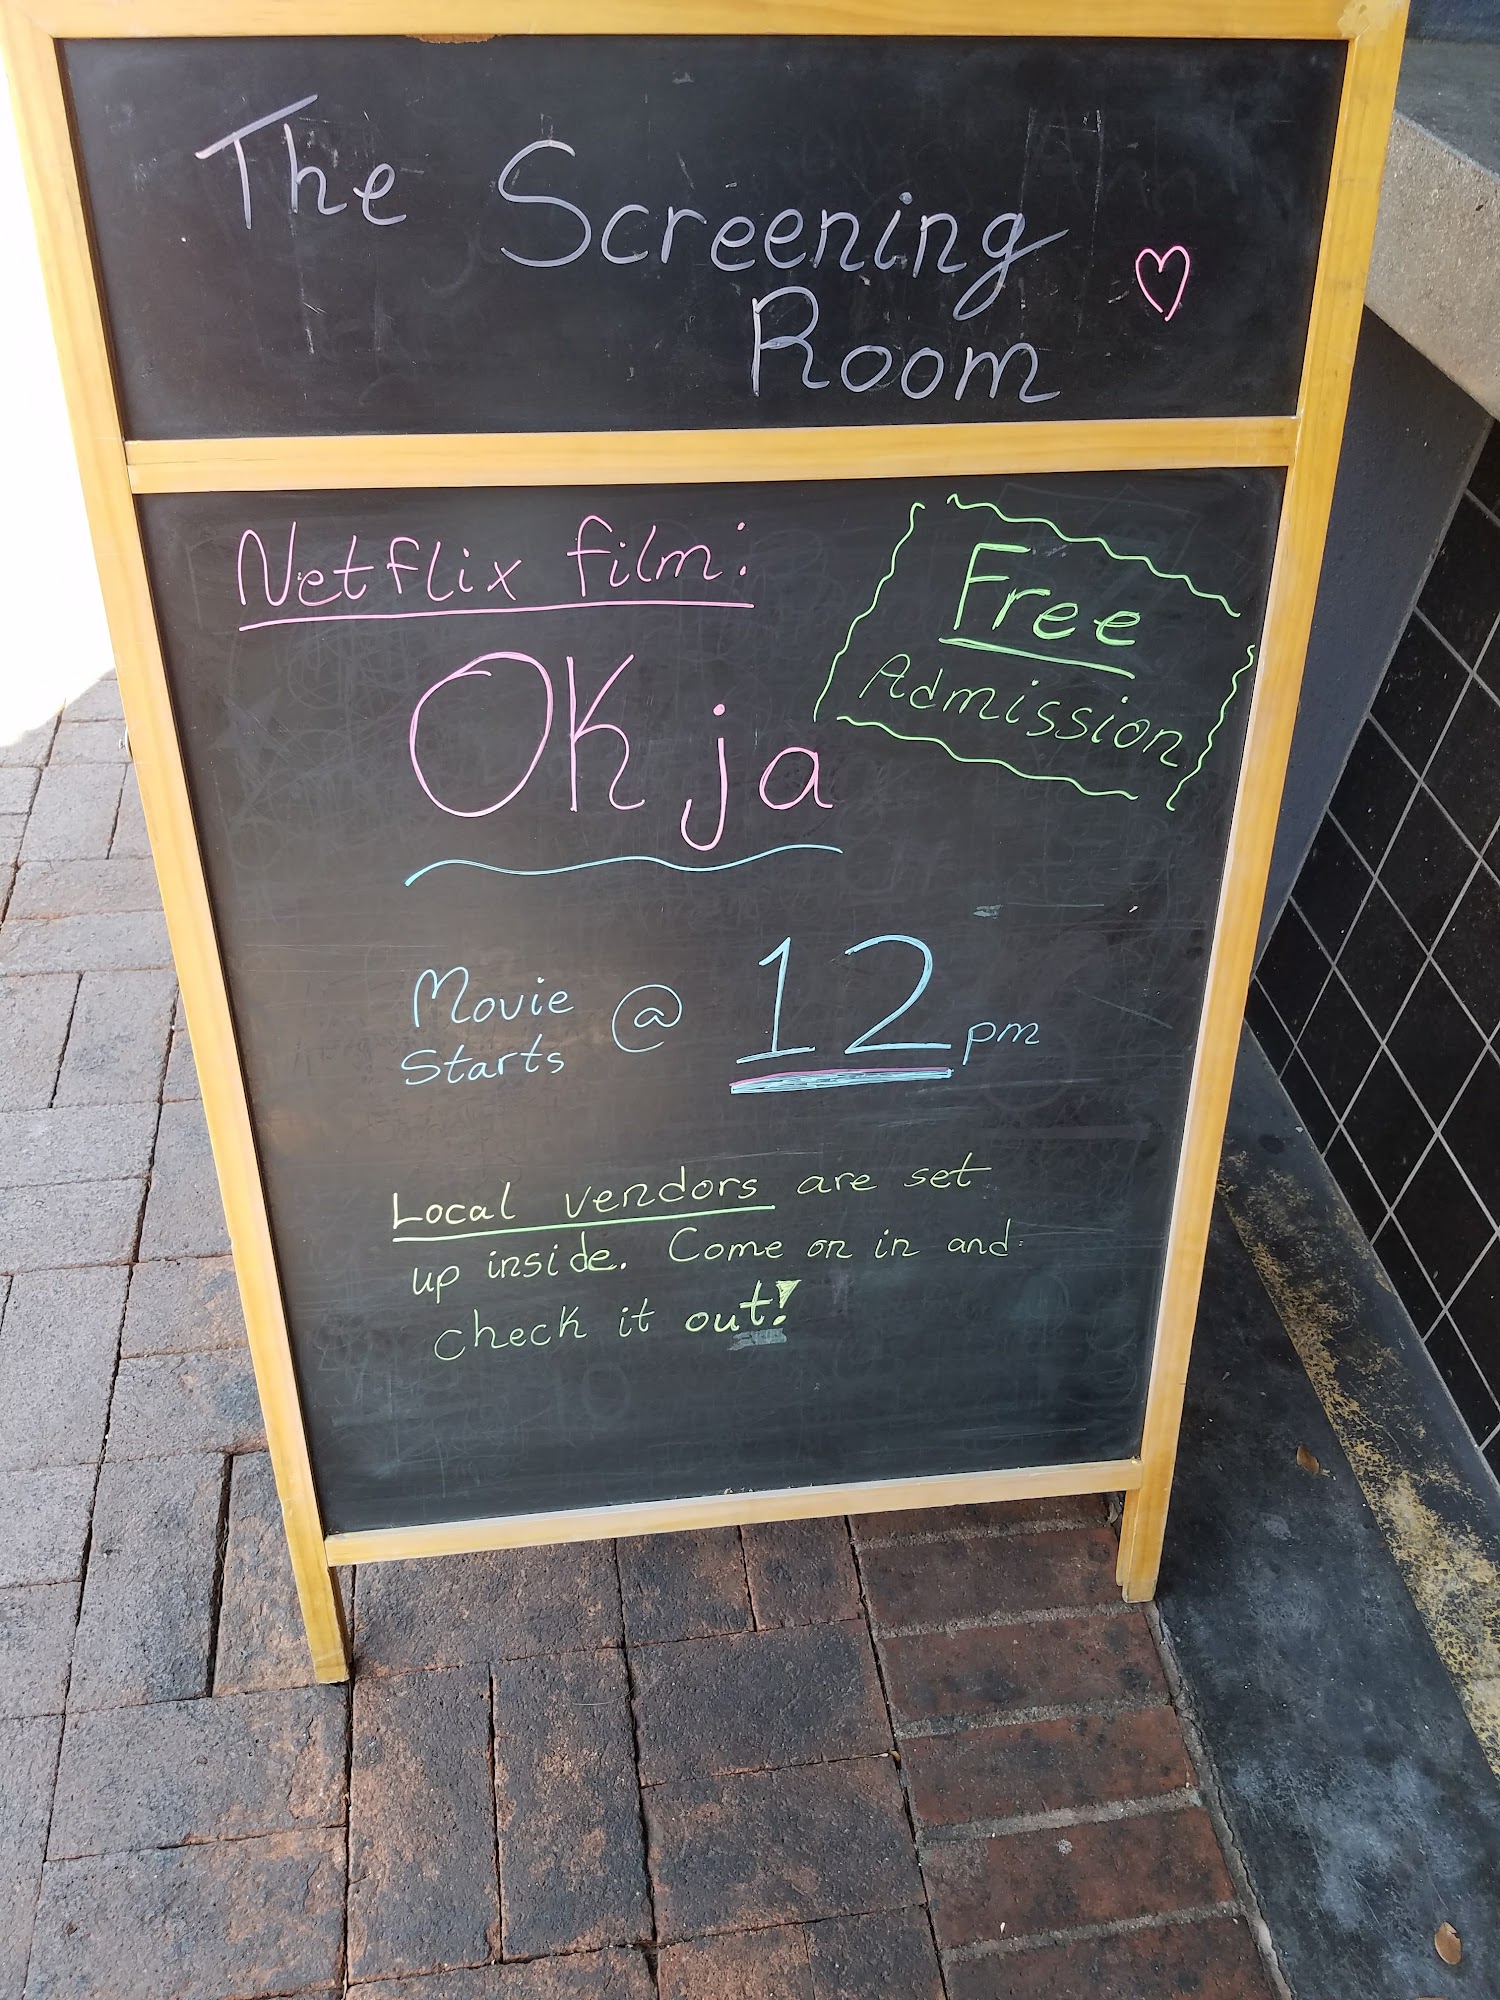 The Screening
Room
Netflix film:
Okja
Free
Admission
Movie
Starts @ 12 pm
Local vendors are set
up inside. Come on in and
check it out!